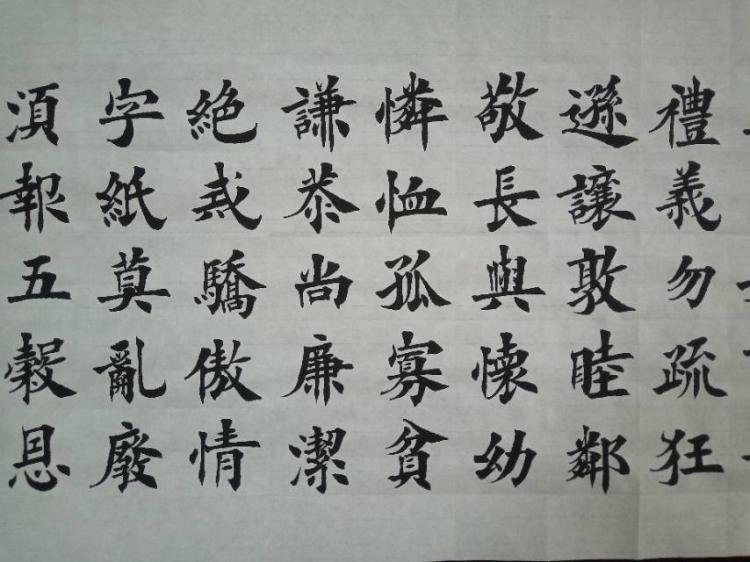 禮義勿疏狂
遜讓敦睦鄰
敬長與懷幼
憐恤孤寡貧
謙恭尚廉潔
絕戒驕傲情
字紙莫亂廢
須報五穀恩